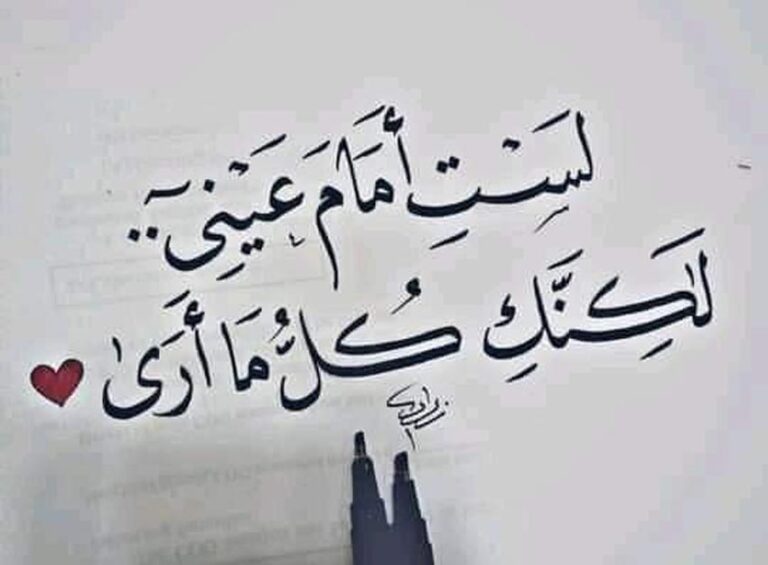 لَسْتِ أَمَامَ عَيْنِي..
لَكِنَّكِ كُلُّ مَا أَرَىٰ